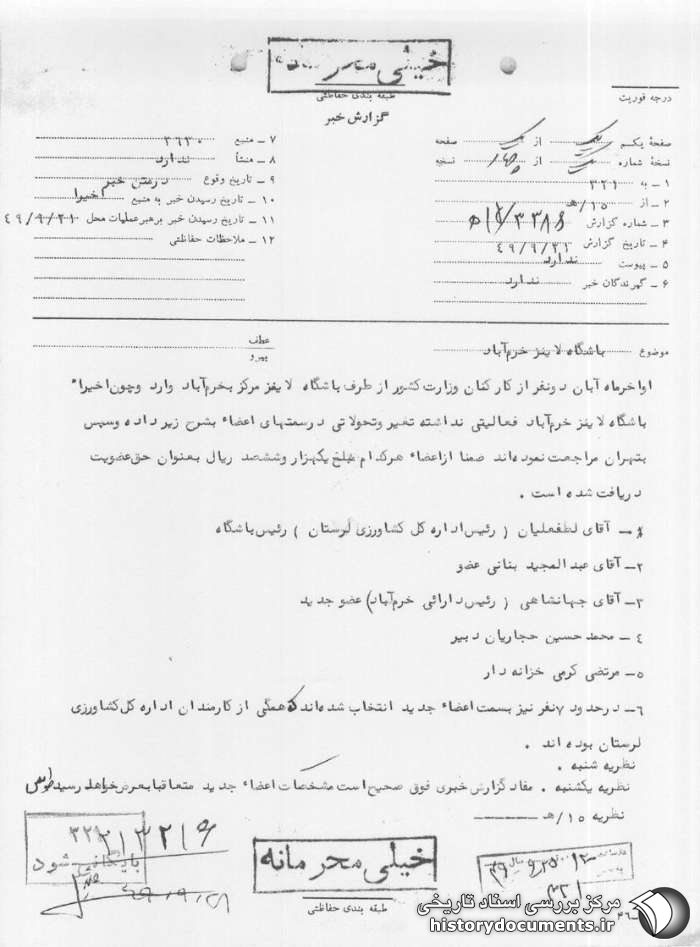 خیلی محرمانه
طبقه بندی حفاظتی
گزارش خبر
درجه فوریت
صفحهٔ یکم یک از یک صفحه
نسخهٔ شماره از نسخه
۱ – به ۳۲۱
۲ – از ۱۵/هـ
۳ – شماره گزارش
۴ – تاریخ گزارش ۴۹/۹/۲۱
۵ – پیوست ندارد
۶ – گیرندگان خبر ندارد
۷ – منبع ۲۶۳۰
۸ – منشأ ندارد
۹ – تاریخ وقوع درمتن خبر
۱۰ – تاریخ رسیدن خبر به منبع اخیرا
۱۱ – تاریخ رسیدن خبر برهبرعملیات محل ۴۹/۹/۲۱
۱۲ – ملاحظات حفاظتی
موضوع باشگاه لاینز خرم‌آباد
عطف
پیرو
اواخرماه آبان دونفر از کارکنان وزارت کشور از طرف باشگاه لاینز مرکز بخرم‌آباد وارد وچون اخیراء
باشگاه لاینز خرم‌آباد فعالیتی نداشته تغیر وتحولاتی درسمتهای اعضاء بشرح زیر داده وسپس
بتهران مراجعت نموده‌اند ضمنا ازاعضاء هرکدام مبلغ یکهزار وششصد ریال بعنوان حق‌عضویت
دریافت شده است .
۱– آقای لطفعلیان ( رئیس‌اداره کل کشاورزی لرستان ) رئیس‌باشگاه
۲– آقای عبدالمجید بنانی عضو
۳– آقای جهانشاهی ( رئیس‌دارائی خرم‌آباد) عضو جدید
۴ – محمد حسین حجاریان دبیر
۵– مرتضی کرمی خزانه دار
۶– درحدود ۷نفر نیز بسمت اعضاء جدید انتخاب شده‌اند که همگی از کارمندان اداره کل‌کشاورزی
لرستان بوده اند .
نظریه شنبه .
نظریه یکشنبه . مفاد گزارش خبری فوق صحیح‌است مشخصات اعضاء جدید متعاقبا بعرض‌خواهد رسید
نظریه ۱۵/هـ
۳۲۱
۲۱۳۲۱۶
بایگانی شود
۴۹،۹،۲۸
خیلی محرمانه
طبقه بندی حفاظتی
۳۲۱
مرکز بررسی اسناد تاریخی
historydocuments.ir